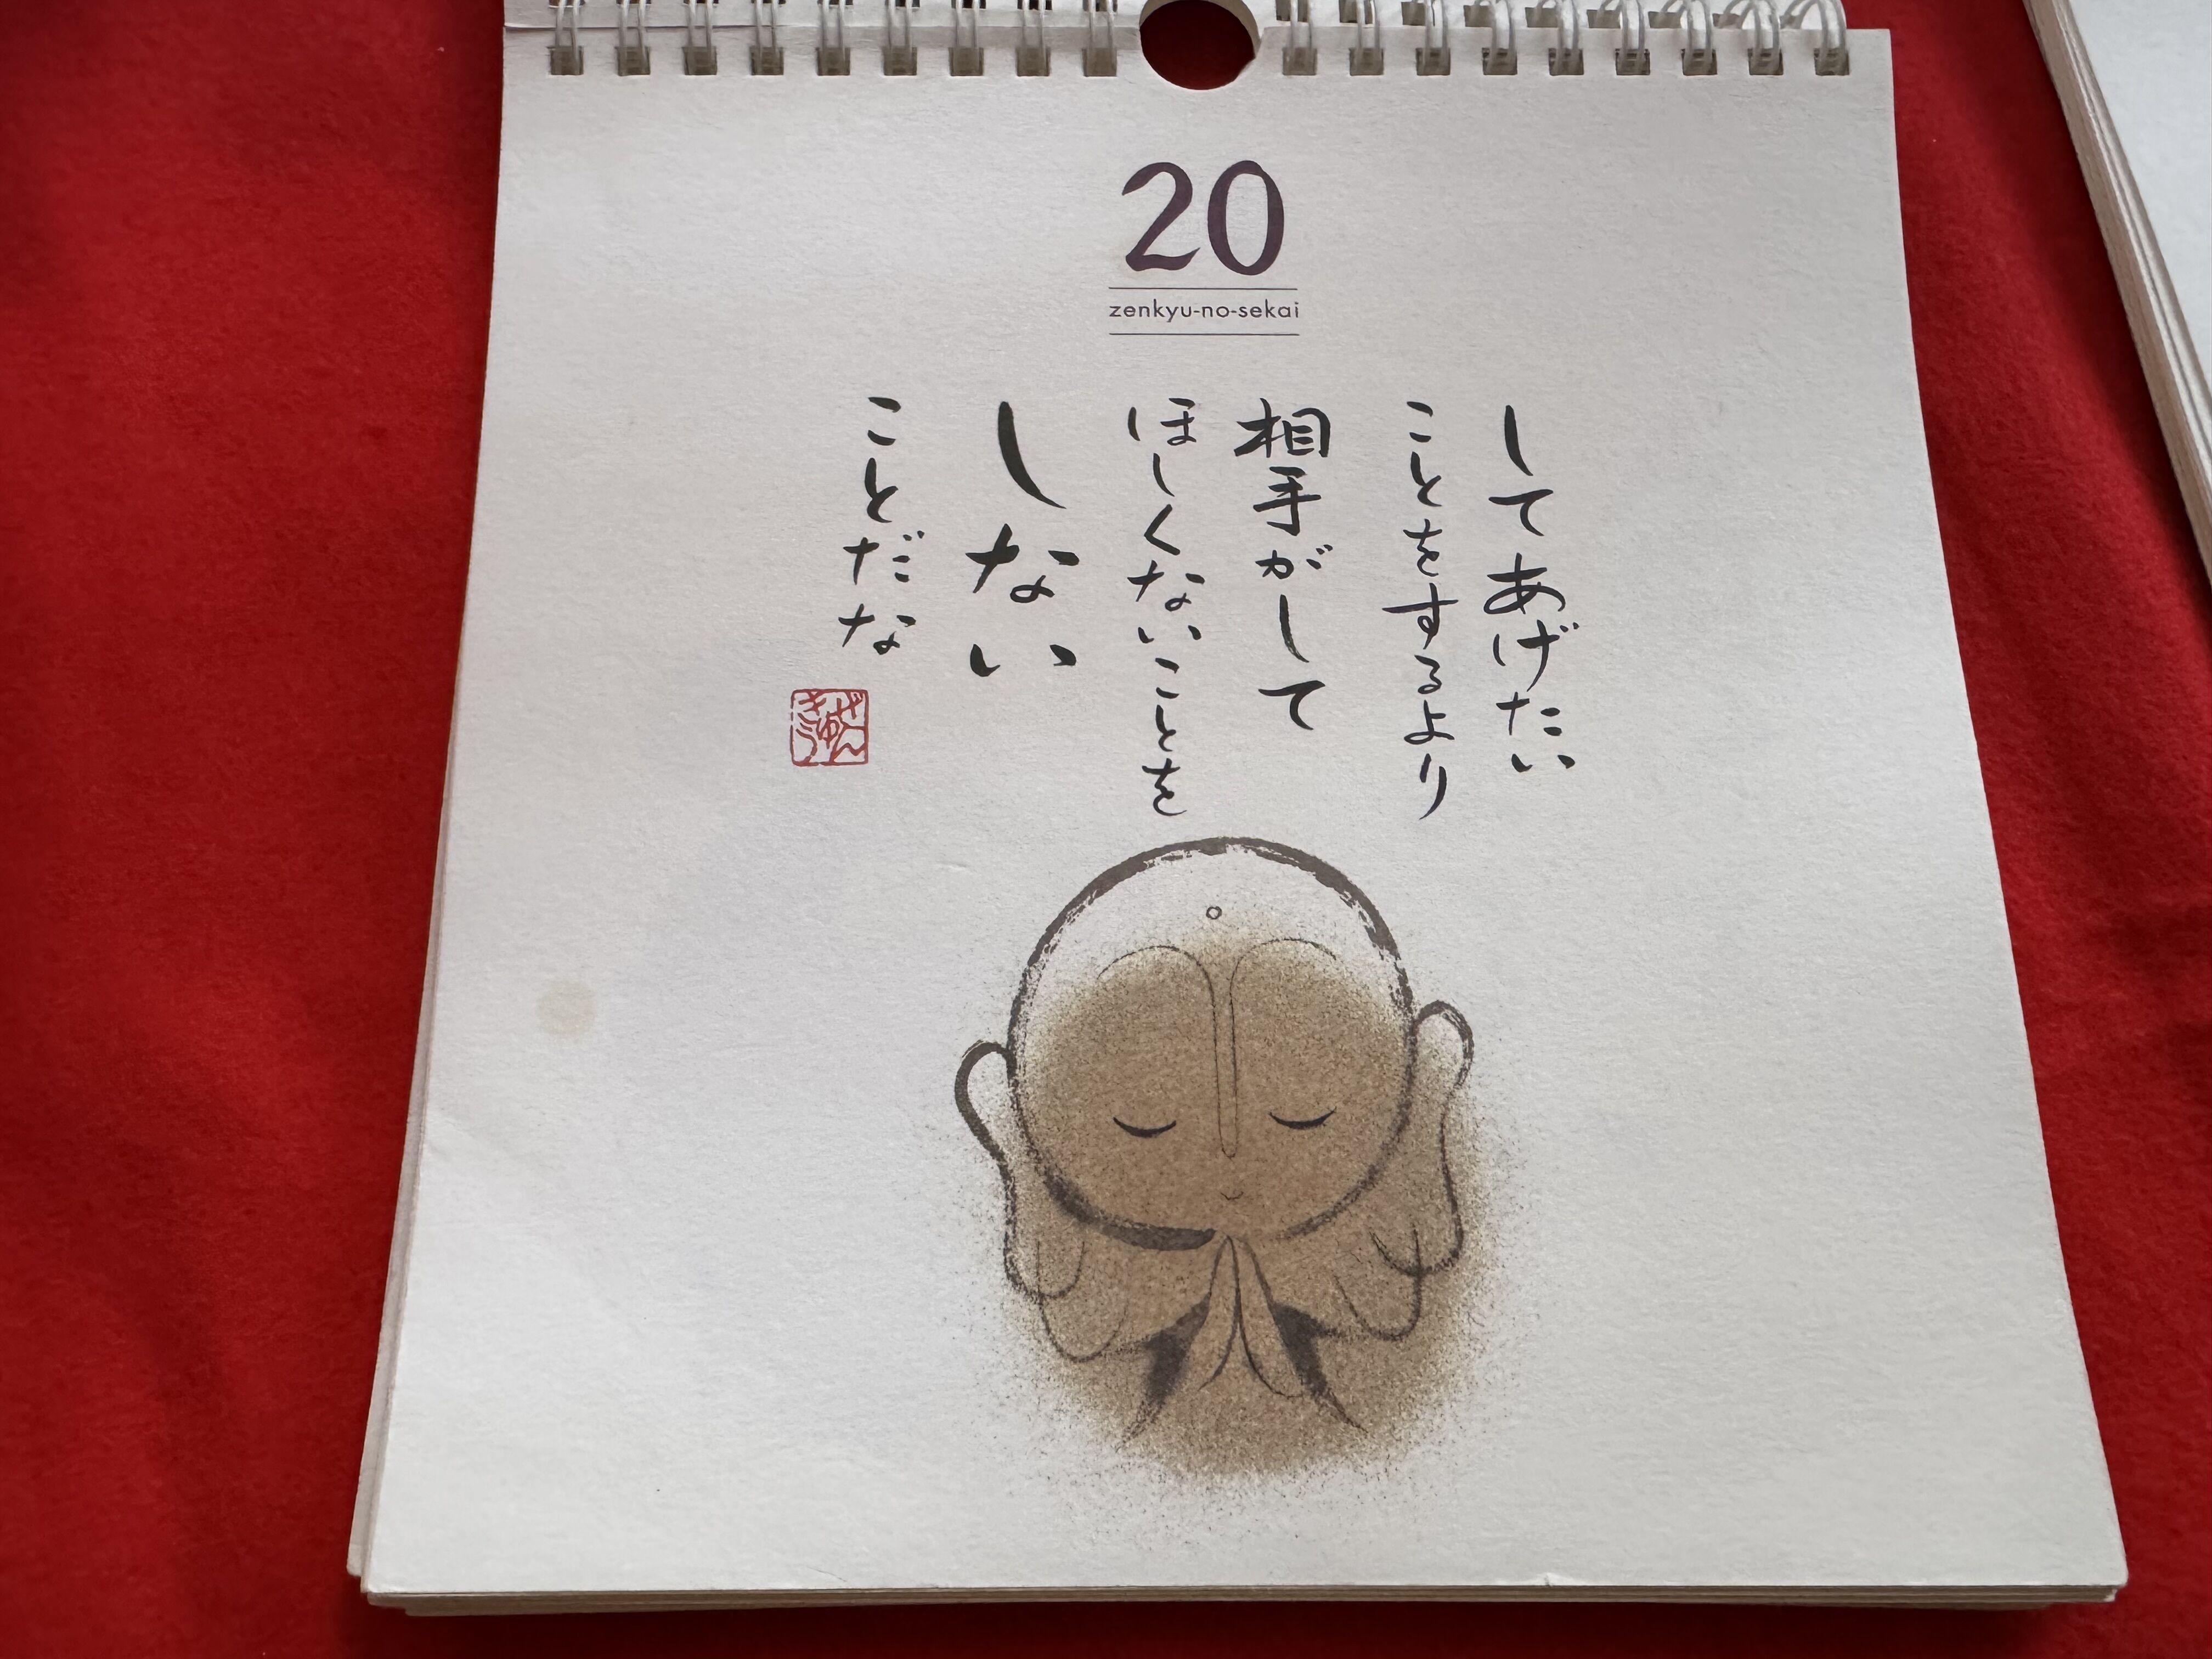 20
zenkyu-no-sekai
してあげたい
ことをするより
相手がして
ほしくないことを
しない
ことだな
ぜん
きゅう